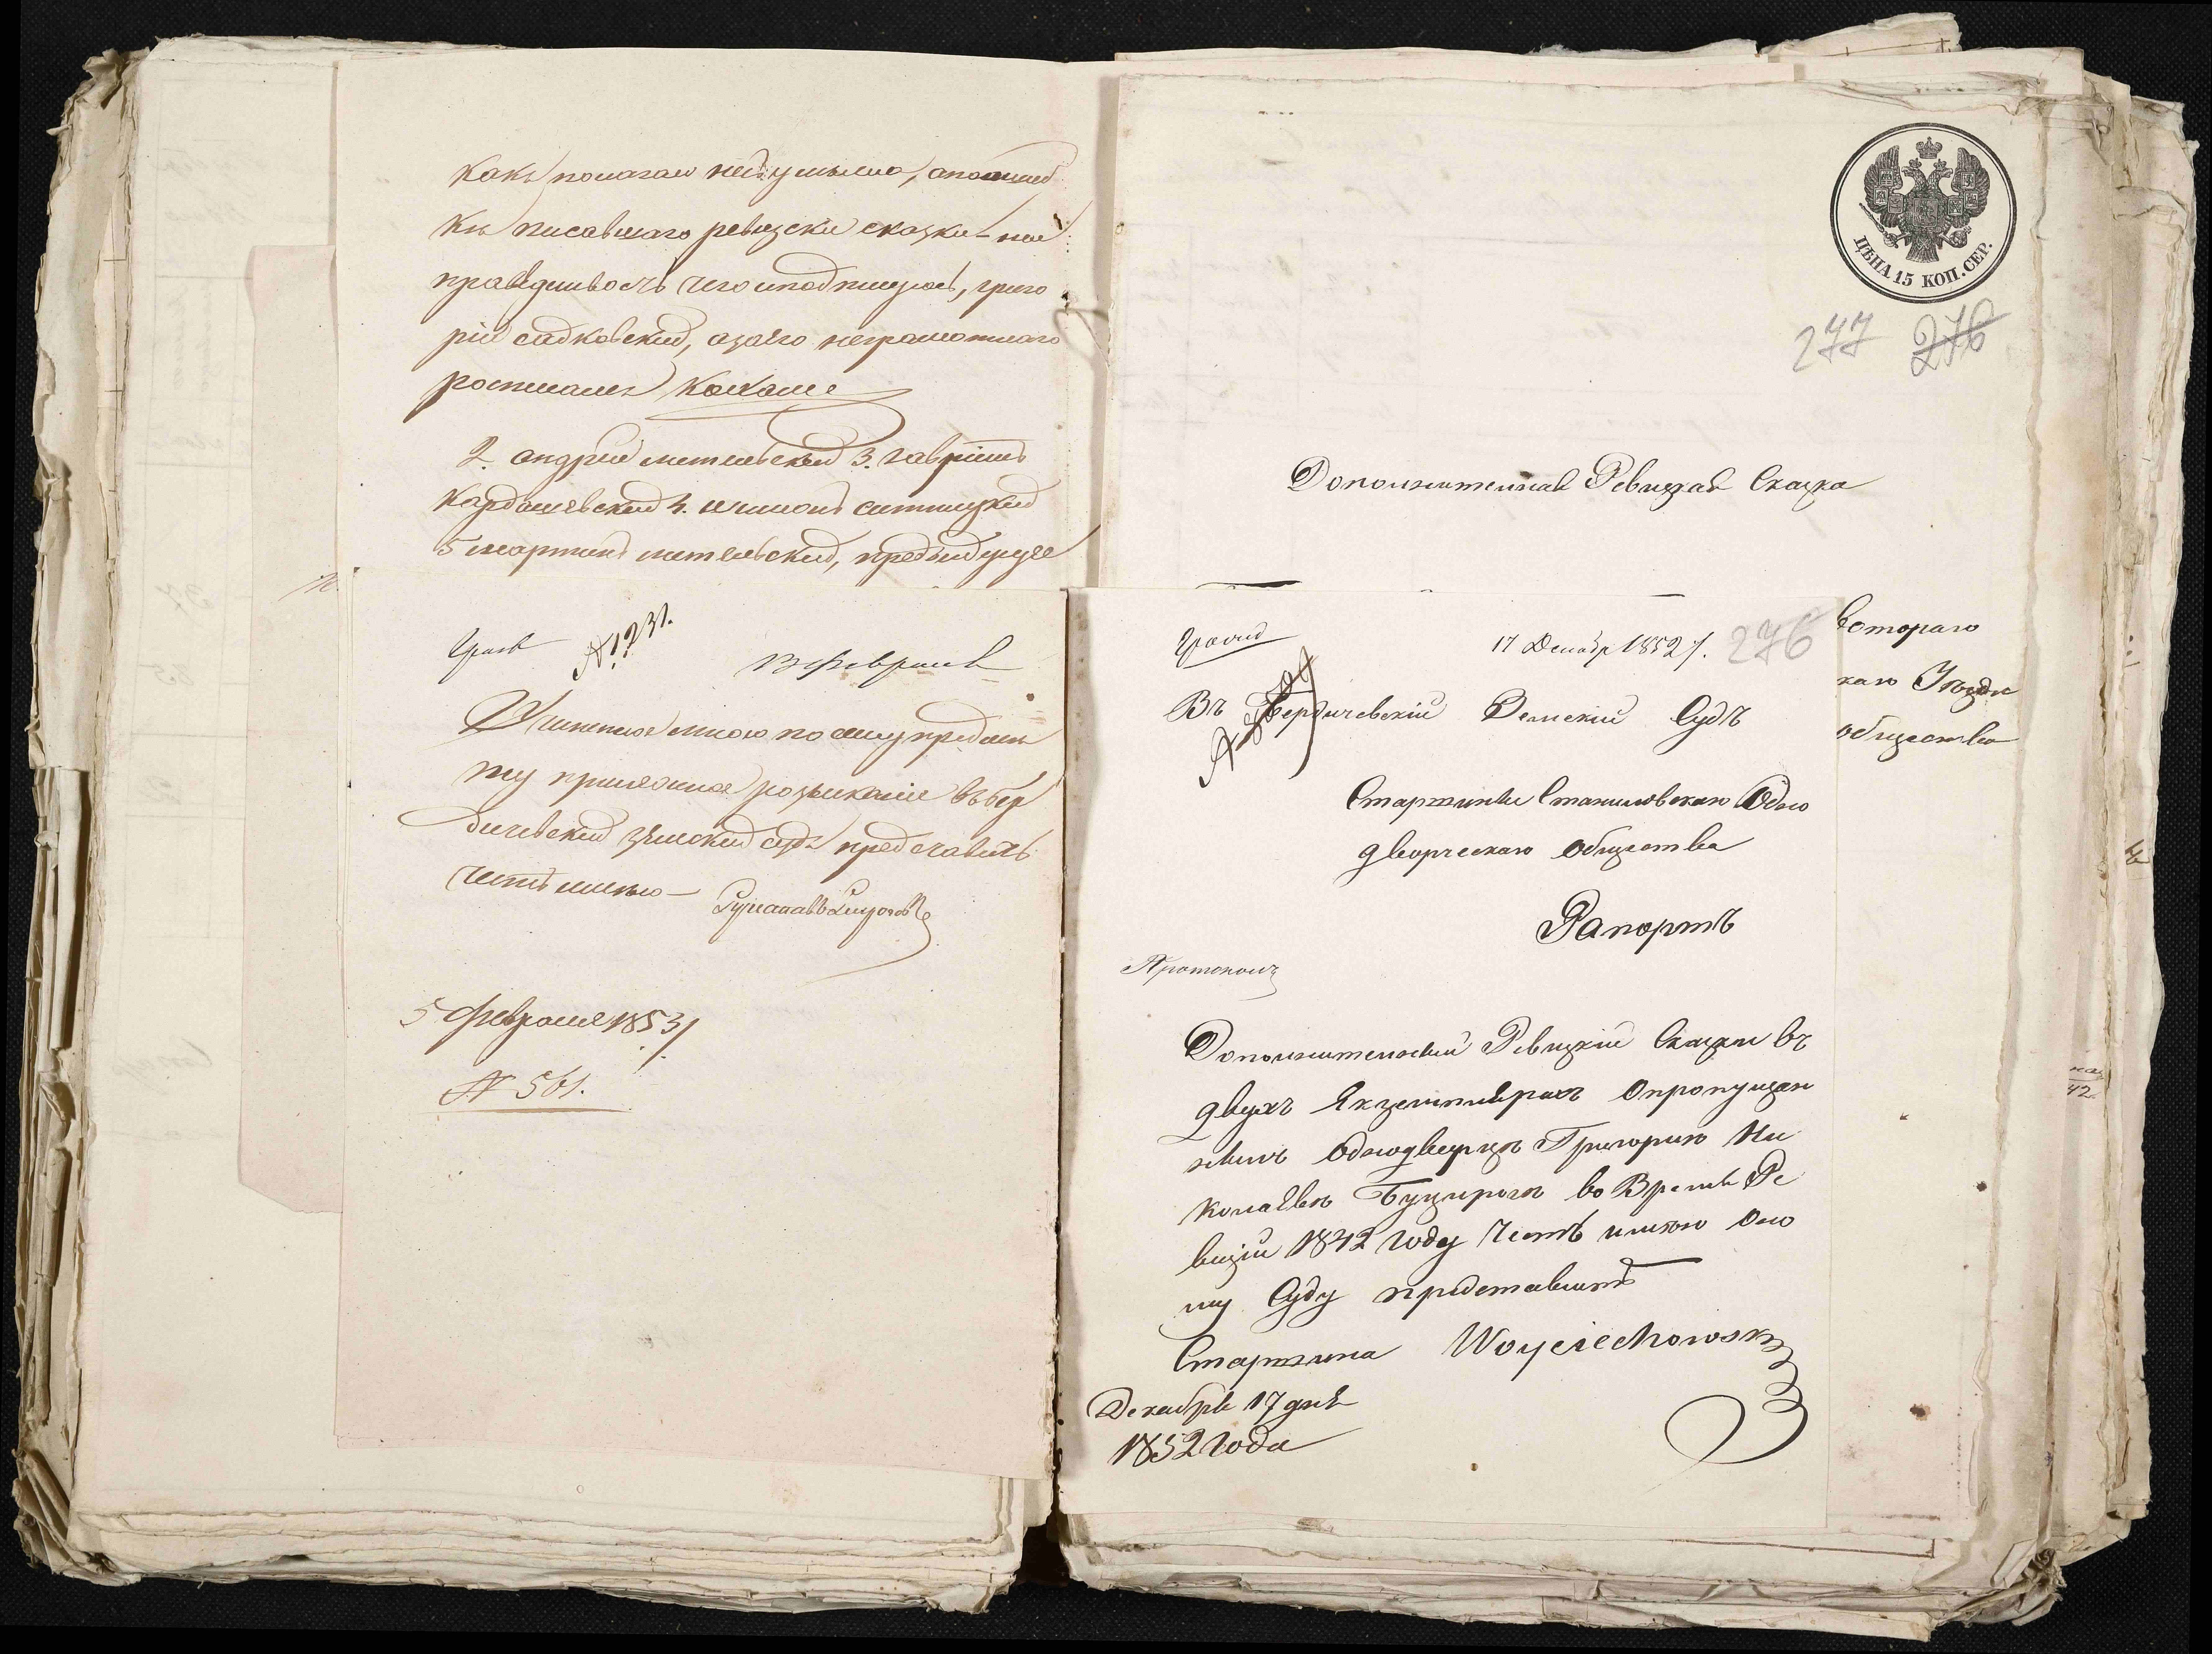 какъ полагаю неумышлено, апоошиб
ки писавшаго ревизски сказки – на
праведливость чего иподпишусь, григо
рій садковский, азаего неграмотнаго
росписался
2. андрей метельский 3. гаврiилъ
кардашевский 4. шимонъ ситницкий
5 мартинъ метельский, предъидущее
№ 1231.
13 февраля
Учиненное мною по сему предме
ту приложенное розыскание въ бер
дичевский земский судъ представить
честь имею –
5 февраля 1853 г
№ 561.
ЦѢНА 15 КОП. СЕР.
277 276
Дополнительная Ревизкая Сказка
втораго
каго Уезда
общества
17 Декабр 1852 г. 276
Въ Бердичевскій Земскій Судъ
Старшины Станиловскаго Одно
дворческаго Общества
Рапортъ
Протоколъ
Дополнительный Ревизкіи Сказки въ
двухъ Екземплярахъ Опропущен
нымъ Однодверцѣ Григорию Ни
колаевѣ Буцирогѣ во Время Ре
визіи 1842 году Честь имѣю Оно
му Суду представить
Старшина Woyciechowski
Декабря 17 дня
1852 года